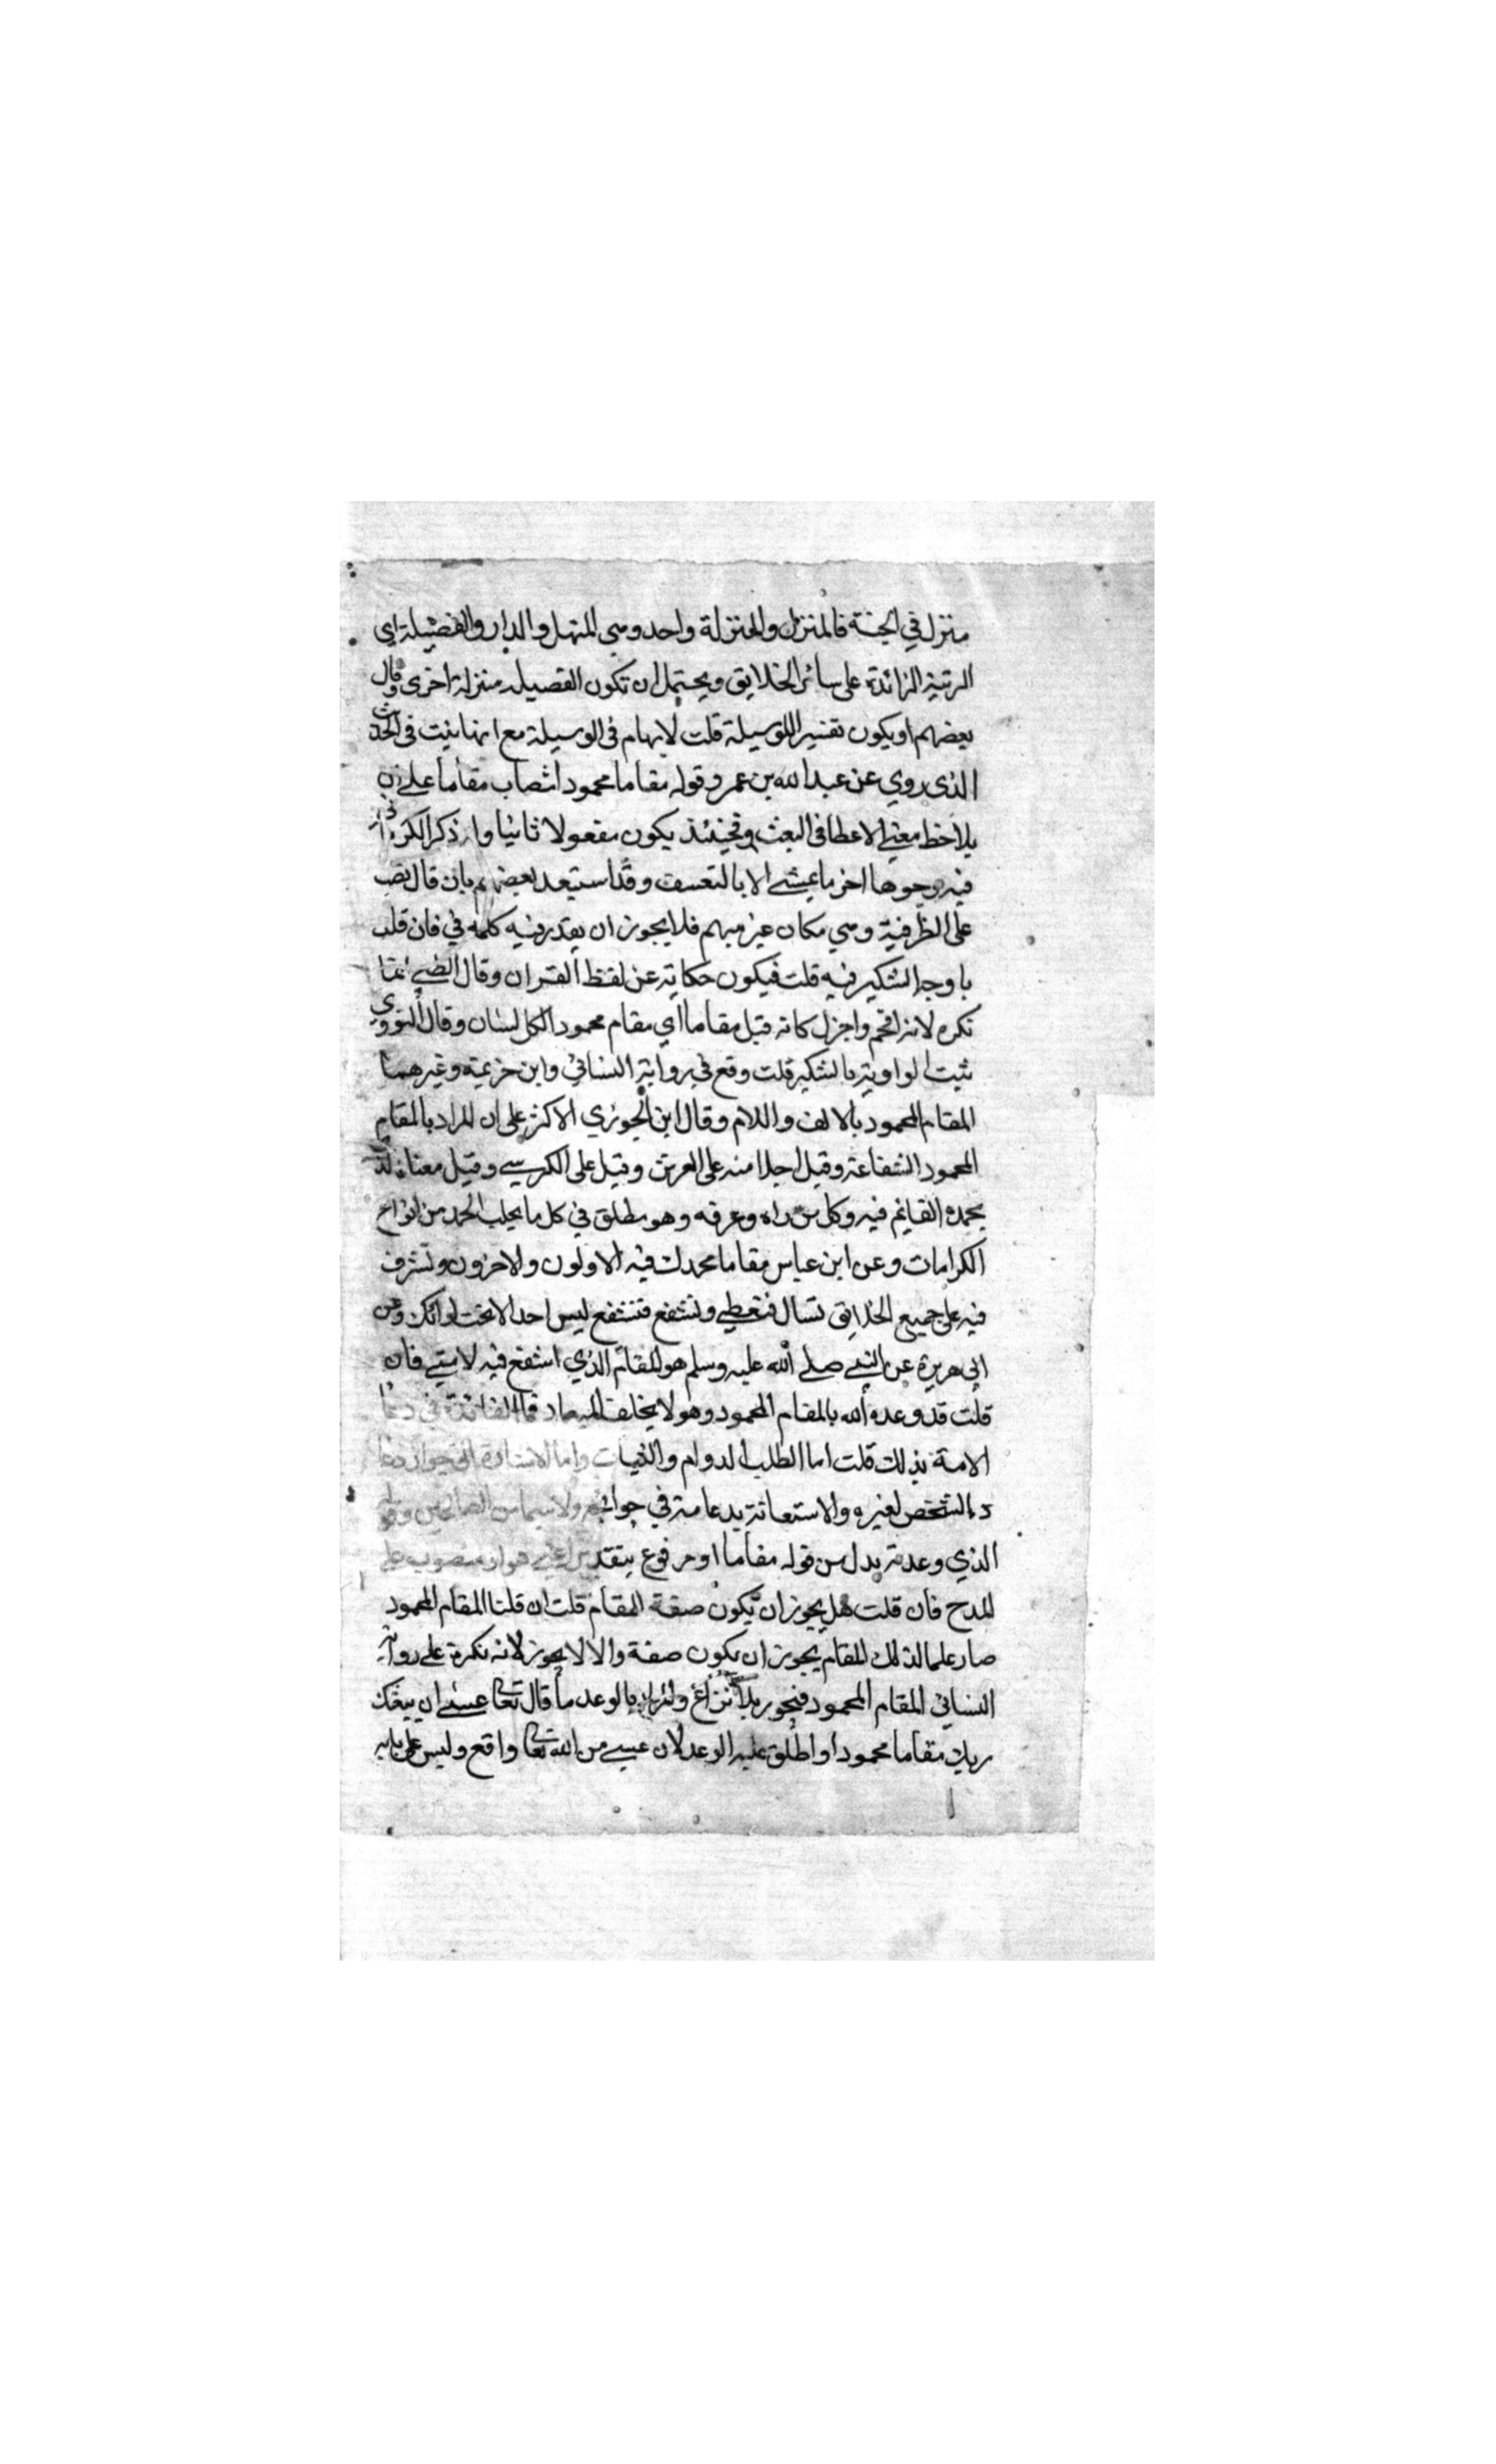 منزلة في الجنة فالمنزل والمنزلة واحد وهي المنهل والدار والفضيلة اي
الرتبة الزائدة على سائر الخلايق ويحتمل ان تكون الفضيلة منزلة اخرى وقال
بعضهم او يكون تفسيرا للوسيلة قلت لا ابهام في الوسيلة مع انها بينت في الحديث
الذي روي عن عبد الله بن عمر وقوله مقاما محمودا انتصاب مقاما على ان
يلاحظ معنى الاعطا في البعث وحينئذ يكون مفعولا ثانيا وان ذكر الكرماني
فيه وجوها اخر ما يمشي الا بالتعسف وقد استبعد بعضهم بان قال نصب
على الظرفية وهي مكان غير مبهم فلا يجوز ان يقدر فيه كلمة في فان قلت
ما وجه التنكير فيه قلت فيكون حكاية عن لفظ القران وقال الطيبي انما
نكره لانه افخم واجزل كانه قيل مقاما اي مقام محمودا بكل لسان وقال النووي
ثبت الرواية بالتنكير قلت وقع في رواية النسائي وابن خزيمة وغيرهما
المقام المحمود بالالف واللام وقال ابن الجوزي الاكثر على ان المراد بالمقام
المحمود الشفاعة وقيل اجلاسه على العرش وقيل على الكرسي وقيل معناه الذي
يحمده القايم فيه وكل من راه وعرفه وهو مطلق في كل ما يجلب الحمد من انواع
الكرامات وعن ابن عباس مقاما يحمدك فيه الاولون والاخرون وتشرف
فيه على جميع الخلايق تسال فتعطى وتشفع فتشفع ليس احد الا تحت لوائك وعن
ابي هريرة عن النبي صلى الله عليه وسلم هو المقام الذي اشفع فيه لامتي فان
قلت قد وعده الله بالمقام المحمود وهو لا يخلف الميعاد فما الفائدة في دعا
الامة بذلك قلت اما الطلب الدوام والثبات واما الاشارة الى جواز دعا
د الشخص لغيره والاستعانة بدعائه في حوائجه ولاسيما من الصالحين وقوله
الذي وعدته بدل من قوله مقاما او مرفوع بتقدير اعني هو او منصوب على
المدح فان قلت هل يجوز ان تكون صفة المقام قلت ان قلنا المقام المحمود
صار علما لذلك المقام يجوز ان يكون صفة والا لا يجوز لانه نكرة على رواية
النسائي المقام المحمود فيجوز بلا نزاع والمراد بالوعد ما قال تعالى عسى ان يبعثك
ربك مقاما محمودا واطلق عليه الوعد لان عسى من الله تعالى واقع وليس على بابه